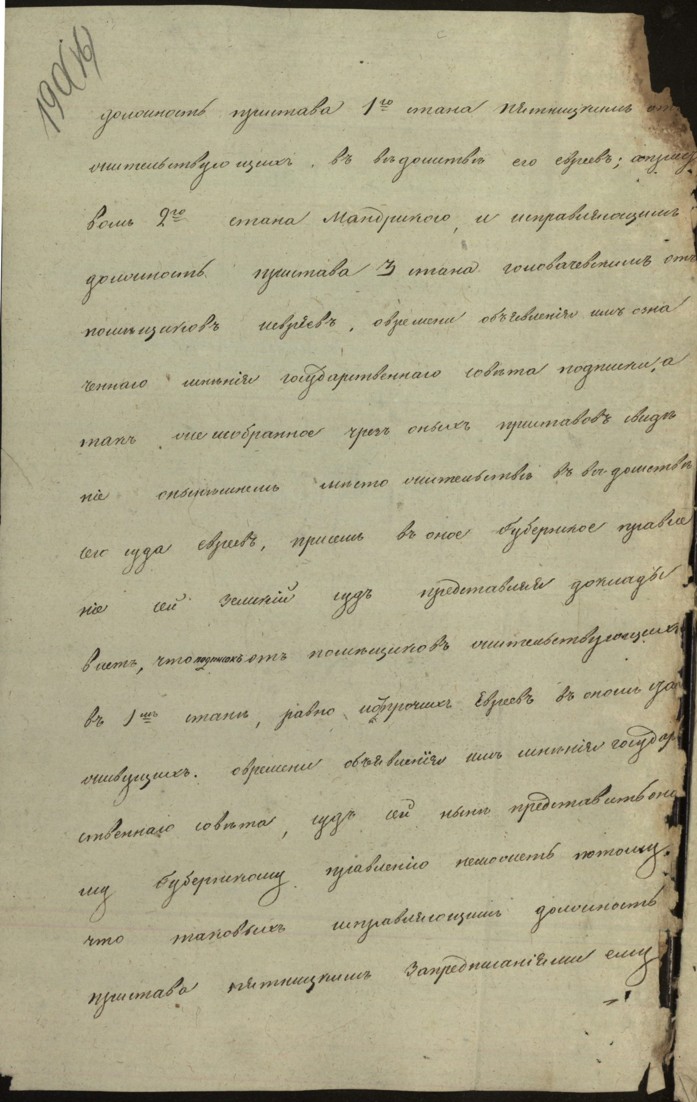 190(16)
должность пристава 1го стана Пятницкимъ от
жительствующихъ въ вѣдомствѣ его евреевъ; приста
вомъ 2го стана Мандрикого, и исправляющимъ
должность пристава 3 стана Головачевскимъ отъ
помѣщиковъ иевреевъ, овремени объявленія имъ озна
ченнаго мнѣнія государственнаго совѣта подписки, а
такъ же исобранное чрезъ оныхъ приставовъ свѣдѣ
ніе онынѣшнемъ мѣсто жительствѣ въ вѣдомствѣ
сего суда евреевъ, присемъ въ оное Губернское правле
ніе сей Земскій судъ представляя доклады
ваетъ, что подписокъ отъ помѣщиковъ жительствующихъ
въ 1мъ станѣ, равно и прочихъ Евреевъ въ ономъ
живущихъ. овремени объявленія имъ мнѣнія государ
ственнаго совѣта, судъ сей нынѣ представить оно
му Губернскому правленію неможетъ потому
что таковыхъ исправляющимъ должность
пристава Пятницкимъ Запредписаніями ему